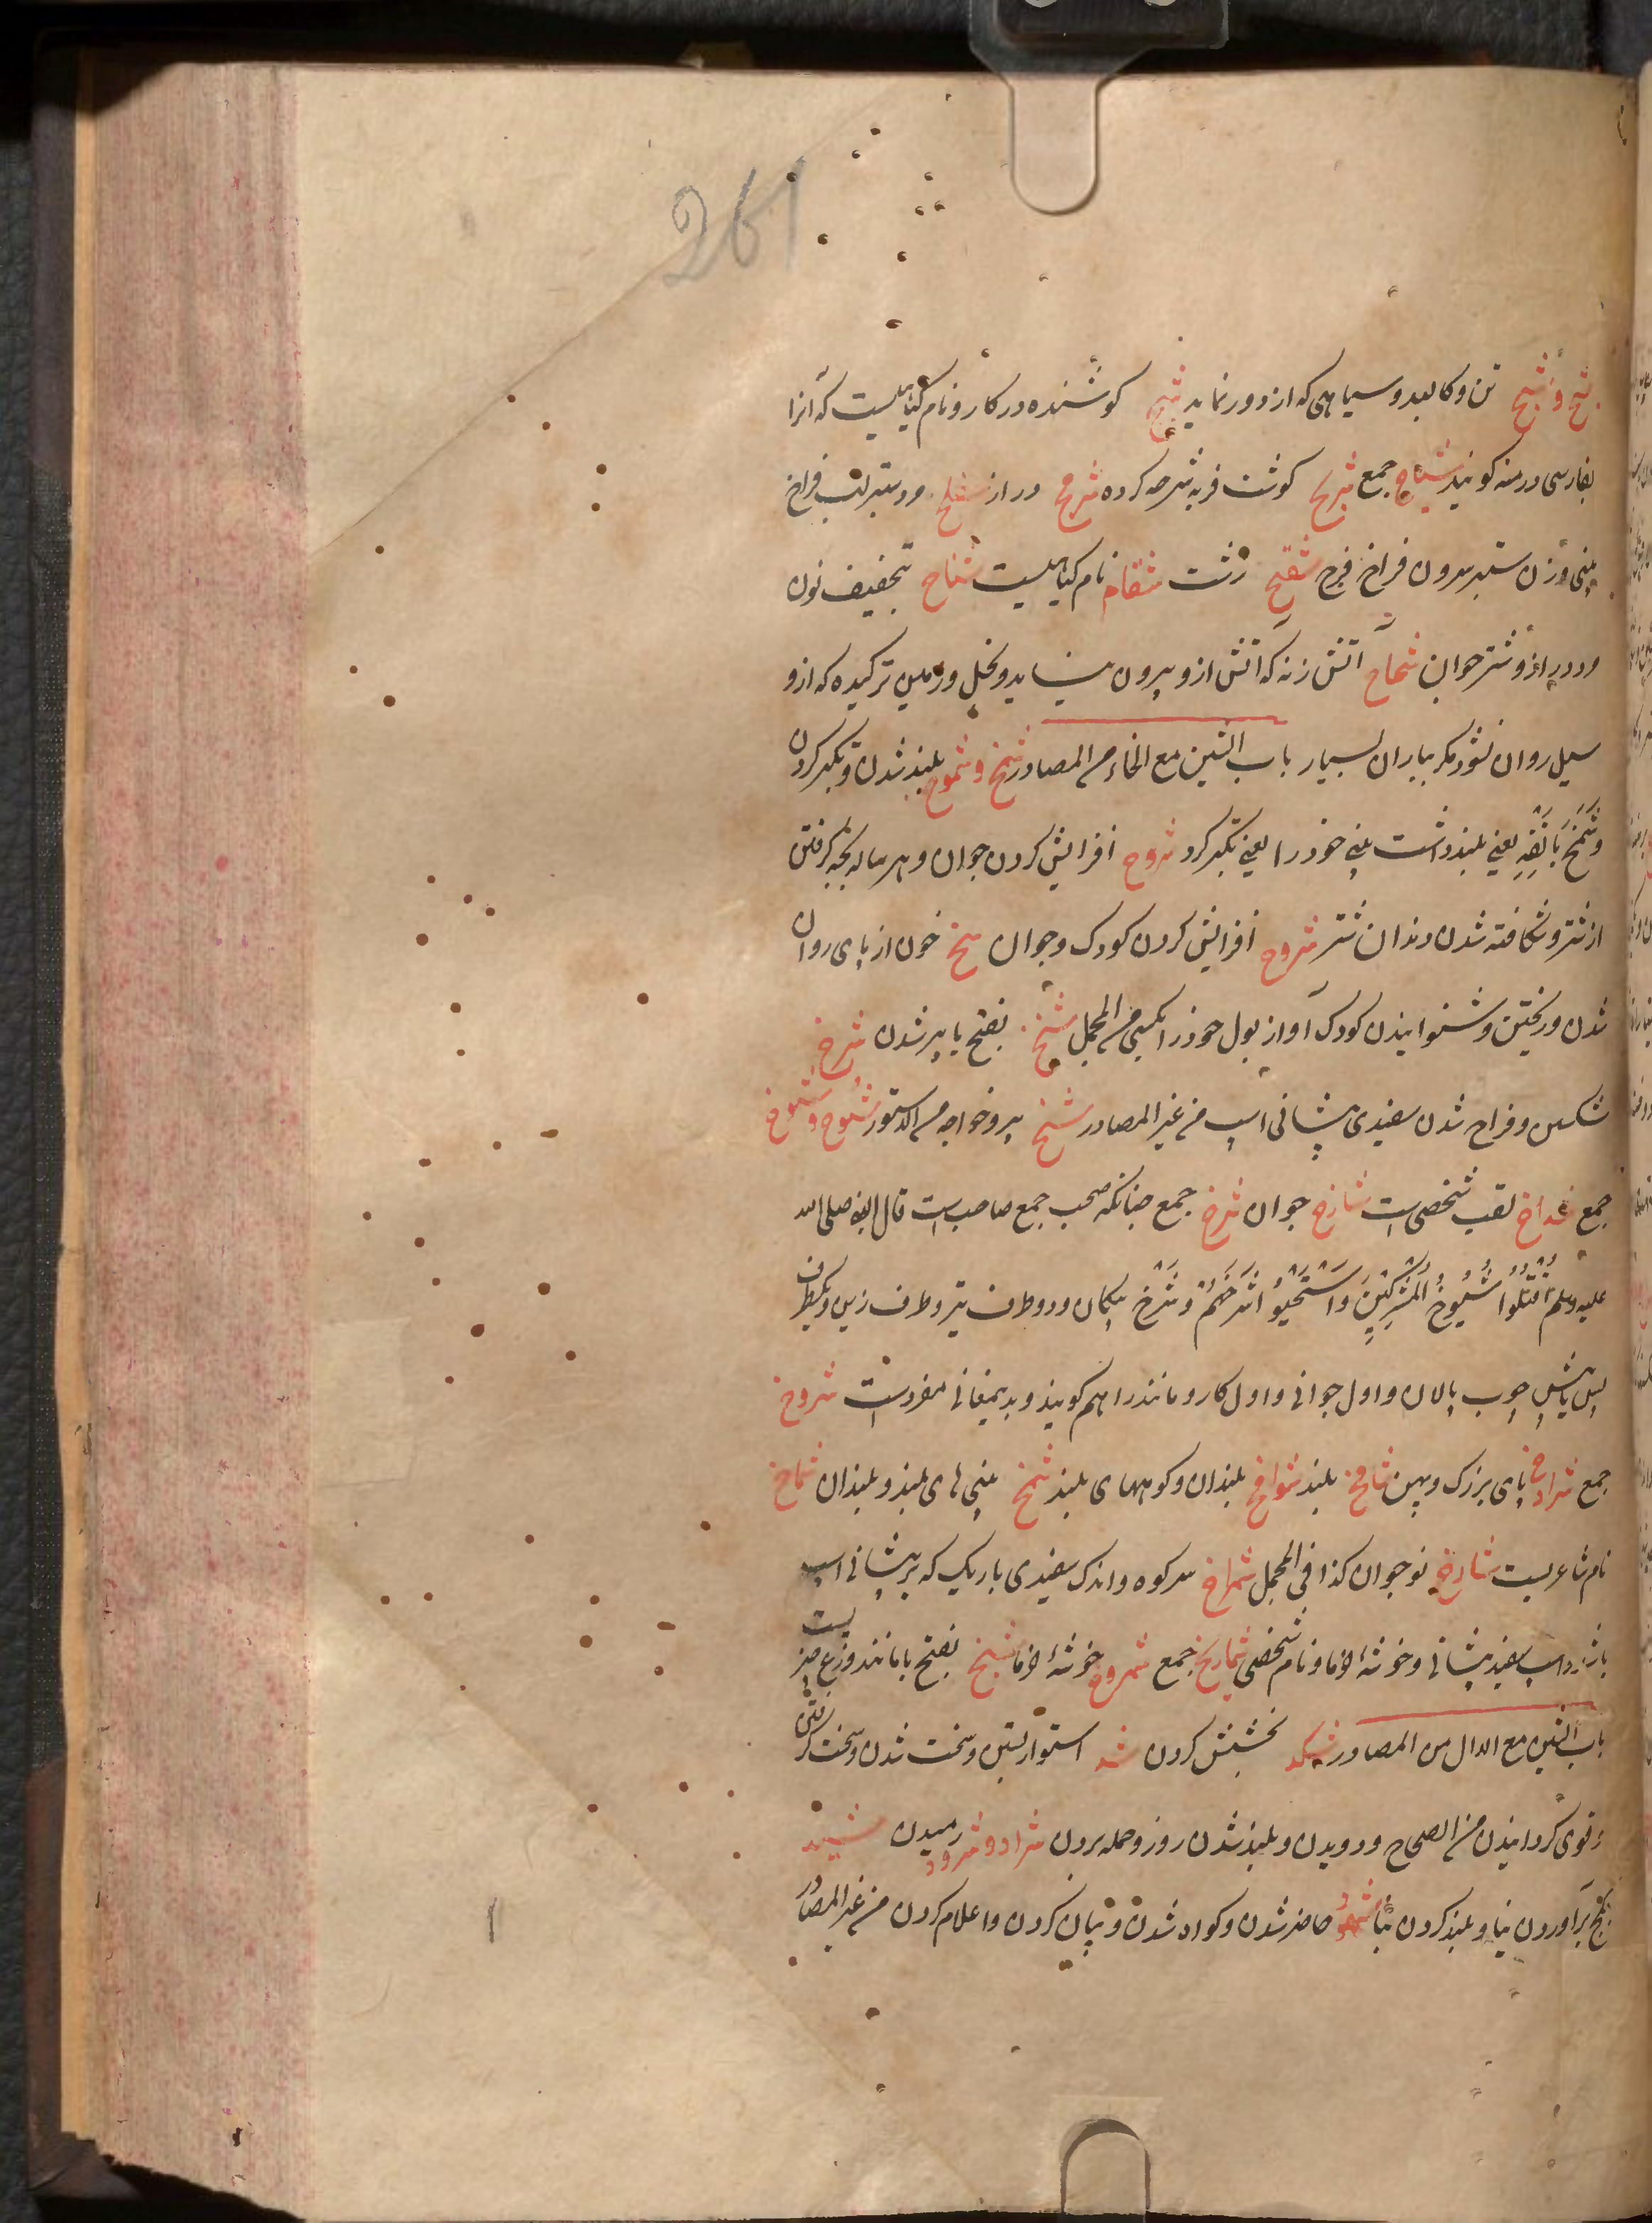 261
شبح و شبح تن و کالبد و سیاهی که از دور نماید شیح کوشنده در کار و نام کیاهیست که آنرا
بفارسی درمنه کویند شیاح جمع شریح کوشت فربه شرحه کرده شرمح دراز شفلح مرد ستبر لب فراخ
بینی و زن ستبر بیرون فراخ فرج شقیح زشت نام کیاهیست شناح بتخفیف نون
مرد دراز و شتر جوان شحاح آتش زنه که آتش ازو بیرون نیاید و بخیل و زمین ترکیده که ازو
سیل روان نشود مکر بباران بسیار باب الشین مع الخاء من المصادر شمخ و شموخ بلند شدن و تکبر کردن
و شَمَخَ بِاَنْفِهِ یعنی بلند داشت بینی خود را یعنی تکبر کرد شروخ افزایش کردن جوان و هر ساله بچه کرفتن
از شتر و شکافته شدن دندان شتر شروخ افزایش کردن کودک و جوان شخ خون از پای روان
شدن و ریختن و شنوانیدن کودک آواز بول خود را کسی من المجمل شیخ بفتح یا پیر شدن شدخ
شکستن و فراخ شدن سفیدی پیشانی اسپ من غیر المصادر شیخ پیر و خواجه من الدستور شیوخ و
جمع شداخ لقب شخصی است شارخ جوان شرخ جمع چنانکه صحب جمع صاحب است قال النبی صلی الله
علیه وسلم اُقْتُلُوا شُیُوخَ الْمُشْرِکِینَ وَاسْتَحْیُوا شَرْخَهُمْ و شَرْخ پیکان و دو طرف تیر و طرف زین و یکطرف
پس یا پیش چوب پالان و اول جوانی و اول کار و مانند را هم کویند و بدیمعانی مفردست شروخ
جمع شرادخ پای بزرک و پهن شامخ بلند شوامخ بلندان و کوههای بلند شمخ بینی های بلند و بلندان شماخ
نام شاعریست شارخ نوجوان کذا فی المجمل شمراخ سر کوه و اندک سفیدی باریک که بر پیشانی اسپ
باشد و اسپ سفید پیشانی و خوشهٔ خرما و نام شخصی شماریخ جمع شمروخ خوشهٔ خرما بفتح با مانند وزغ چیزیست
باب الشین مع الدال من المصادر شکد بخشش کردن شد استوار بستن و سخت شدن و سخت کرفتن
و قوی کردانیدن من الصحاح و دویدن و بلند شدن روز و حمله بردن شراد و شرود رمیدن شید
بکچ برآوردن بنا و بلند کردن بنا شهود حاضر شدن و کواه شدن و بیان کردن و اعلام کردن من غیر المصادر